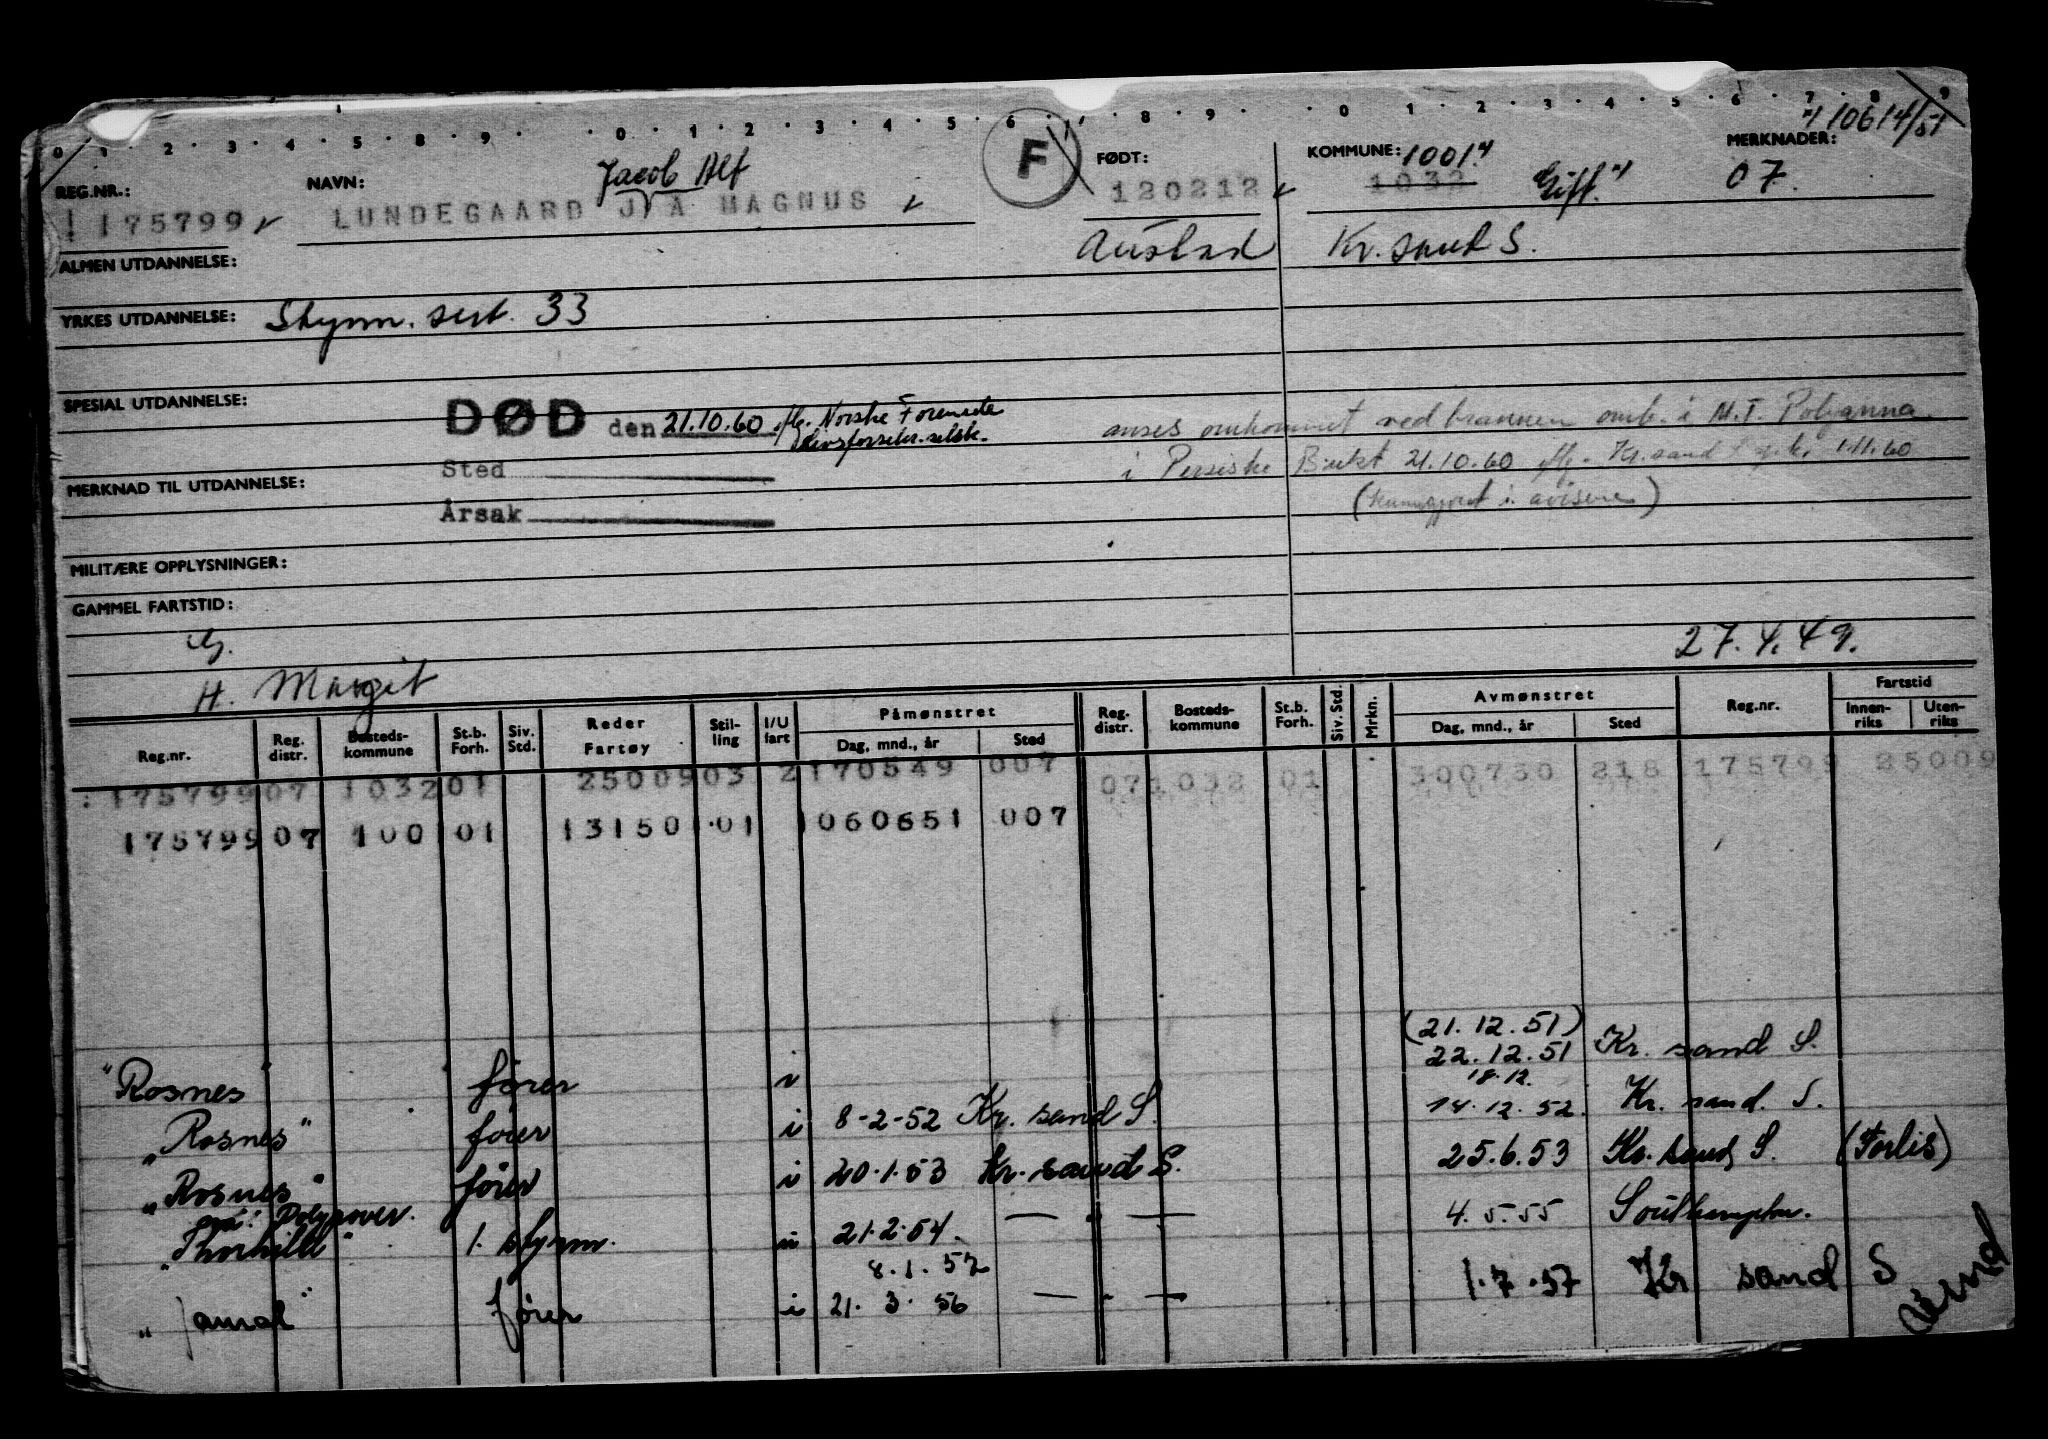 0 1 2 3 4 5 8 9 0 1 2 3 4 5 6 7 8 9 0 1 2 3 4 5 6 7 8 9
F
110614/51
REG.NR.: NAVN: Jacob Alf FØDT: KOMMUNE: 1001 MERKNADER:
175799 LUNDEGAARD J A MAGNUS 120212 1032 Gift. 07.
ALMEN UTDANNELSE: Austad Kr. sand S.
YRKES UTDANNELSE: Styrm. sert. 33
SPESIAL UTDANNELSE:
DØD den 21.10.60 iflg. Norske Forenede
Livsforsikr. selsk.
anses omkommet ved brannen omb. i M.T. Polyanna
Sted
i Persiske Bukt 21.10.60 iflg. Kr.sand 1.11.60
MERKNAD TIL UTDANNELSE:
Årsak
(kunngjort i avisene)
MILITÆRE OPPLYSNINGER:
GAMMEL FARTSTID:
G.
27.4.49.
H. Margit
Reg.nr. Reg. distr. Bosteds- kommune St.b. Forh. Siv. Std. Reder Fartøy Stil- ling I/U fart Påmønstret Dag, mnd., år Sted Reg. distr. Bosteds- kommune St.b. Forh. Siv. Std. Mrkn. Avmønstret Dag, mnd., år Sted Reg.nr. Fartstid Innen- riks Uten- riks
175799 07 1032 01 25009 03 2 170549 007 07 1032 01 300750 218 175799 25009
175799 07 1001 01 13150 01 1 060651 007
(21.12.51)
"Rosnes" fører i 22.12.51 Kr. sand S.
18.12.
"Rosnes" fører i 8-2-52 Kr. sand S. 14.12.52. Kr. sand. S.
"Rosnes" fører i 20.1.53 Kr. sand S. 25.6.53 Kr. sand S. (Forlis)
"Thorhild" 1. styrm. u 21.2.54. — " — 4.5.55 Southampton.
8.1.57
"Jamal" fører i 21.3.56 — " — 1.7.57 Kr sand S